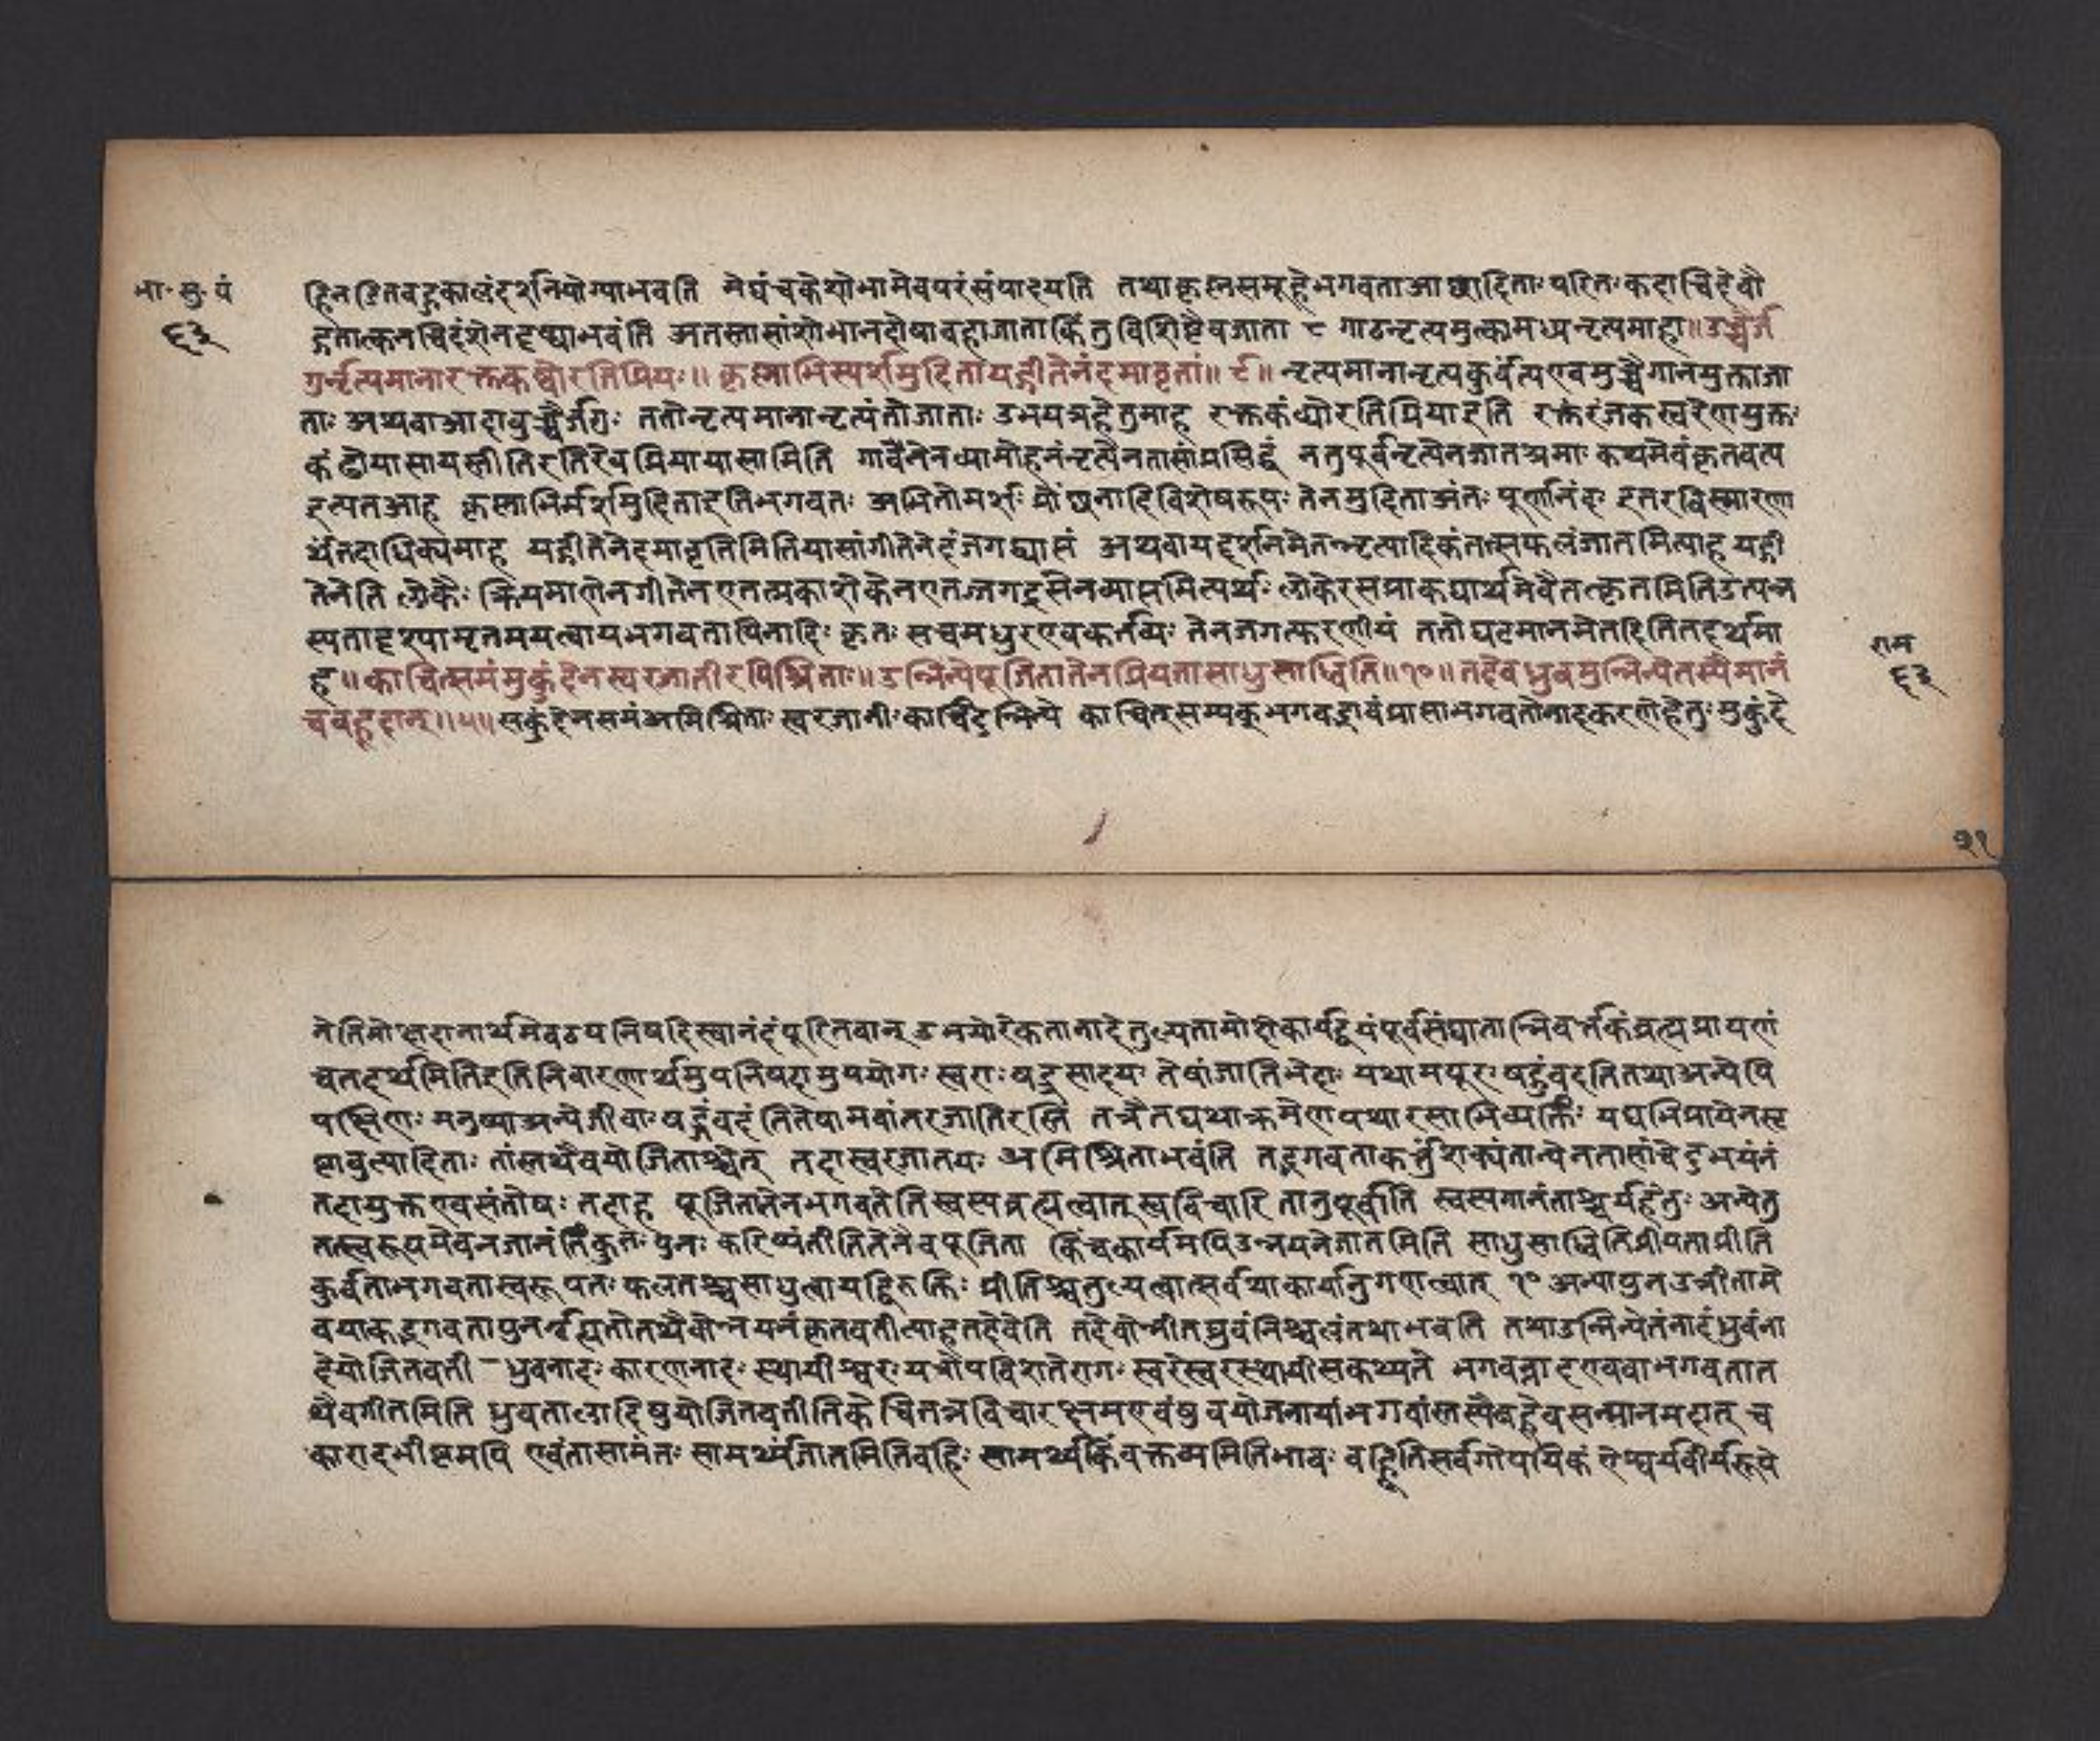 भा. सु. पं
६३
द्दिनस्थितवद्बहुकालंदर्शनयोग्याभवति मेघंचक्रेशोभामेवपरंसंपादयति तथाकृस्नसमूहेभगवताआछादिताः परितः कदाचिद्देवौ
द्गतात्कनचिदंशेनदृष्ट्याभवंति अतस्तासांशोभानदोषावहाजाताकिंतुविशिष्टैवजाता ८ गाढनृत्यमुत्कामध्यनृत्यमाहा॥उच्चैर्ज
गुर्नृत्यमानारक्तकंठ्योरतिप्रियः॥ कृस्नाभिस्पर्शमुदितायद्गीतेनेदमावृतां॥ ९॥ नृत्यमानानृत्यकुर्वत्यएवमुच्चैगानमुक्ताजा
ताः अथवाआदावुच्चैर्जगुः ततोनृत्यमानानृत्यंतोजाताः उभयत्रहेतुमाह रक्तकंठ्योरतिप्रियाइति रक्तंरंजकस्वरेणयुक्तः
कंठोयासायस्त्रीतिरतिरेवप्रियायासामिति गानेनेनव्यामोहनंनृत्येनतासांप्रसिद्धं नतुपूर्वनृत्येनजातश्रमाः कथमेवंकृतवत्य
इत्यतआह कृस्नाभिमर्शमुदिताइतिभगवतः अभितोमर्शः प्रोंछनादिविशेषरूषः तेनमुदिताअंतः पूर्णानंदाः इतरविस्मारणा
र्थंतदाधिक्यमाह यद्गीतेनेदमावृतिमितियासांगीतेनेदंजगद्व्याप्तं अथवायद्दर्शनमेतन्नृत्यादिकंतत्सफलंजातमित्याह यद्गी
तेनेति लोकैः क्रियमाणेनगीतेनएतत्प्रकाशेकेनएतज्जगद्रसेनव्याप्तमित्यर्थः लोकेरसप्राकट्यार्थमेवैतत्कृतमितिउत्पन्न
स्यतादृश्यामृतमयत्वायभगवतापिनादिः कृतः सचमधुरएवकर्तव्यः तेनजगत्करणीयं ततोघटमानमेतदितितदर्थमा
ह॥काचित्समंमुकुंदेनस्वरजातीरपिश्रिताः॥उन्निन्येपूजितातेनप्रियतासाधुसाध्विति॥१०॥तदेवध्रुवमुन्निन्येतस्यैमानं
चबह्वदात्॥५॥सकुंदेनसमंअमिश्रिताः स्वरजातीः काचिदुन्निन्ये काचित्सम्यक्भगवद्भावंप्राप्ताभगवतोनादकरणेहेतुः मुकुंदे
राम
६३
२१
नेतिमोक्षदानार्थमेवठयनिषदिस्वानंदंपूरितवान् उभयोरेकतानादेतुल्यतामोशेकार्यद्वियंपूर्वसंघातान्निवर्त्तकंब्रह्मप्रायणं
चतदर्थमितिइतिनिवारणार्थमुपनिषदामुपयोगः स्वराः षड्रसादयः तेषांजातिभेदाः यथामयूरः षड्जंवदतितथाअन्येपि
पक्षिणः मनुष्याअन्येजीवाः षड्जंवदंतितेषामवांतरजातिरस्ति तत्रैतद्यथाक्रमेणयथारसाभिव्यक्तिः यद्यभिप्रायेनसृ
ष्टावुत्पादिताः तांस्तथैवयोजिताश्चेत् तदास्वरजातयः अमिश्रिताभवंति तद्भगवताकर्त्तुंशक्यंतान्येनतासांचेदुभयंनं
तदायुक्तएवसंतोषः तदाह पूजितातेनभगवतेतिस्वस्यब्रह्मत्वात्स्वविचारितानुपूर्वीति स्वस्पगानंताश्चर्यहेतुः अन्येतु
तत्स्वरूपमेवनजानंतिंकुतः पुनः करिष्यंतीतितेनैवपूजिता किंचकार्यमपिउन्नयनेजातमिति साधुसाध्वितिप्रीयताप्रीति
कुर्वताभगवतास्वरूपतः फलतश्चसाधुत्वायद्विरुक्तिः प्रीतिश्चतुल्यत्वात्सर्वथाकार्यानुगणत्वात् १० अन्यापुनउन्नीतामे
वयाकद्भगवतापुनर्ब्रह्मितोतथैवोन्नयनंकृतवतीत्याहतदेवेति तदेवोन्नीतध्रुवंनिश्चलंतथाभवति तथाउन्निन्येतंनादंध्रुवंना
देयोजितवती ध्रुवनादः कारणनादः स्थायीश्वरः यत्रोपविशतेरागः स्वरेस्वरस्थायीसकथ्यते भगवन्नादएववाभगवतात
थैवगीतमिति ध्रुवतालादिषुयोजितवतीतिकेचितन्नविचारक्षमएवंध्रुवयोजनायांभगवांस्तस्यैबह्वेवसन्मानमदात् च
कारादभीष्टमपि एवंतासामंतः सामर्थ्यंजातमितिवहिः सामर्थ्यकिंवक्तव्यमितिभावः वह्वितिसर्वगोपयिकं ऐश्वर्यवीर्यरूपे